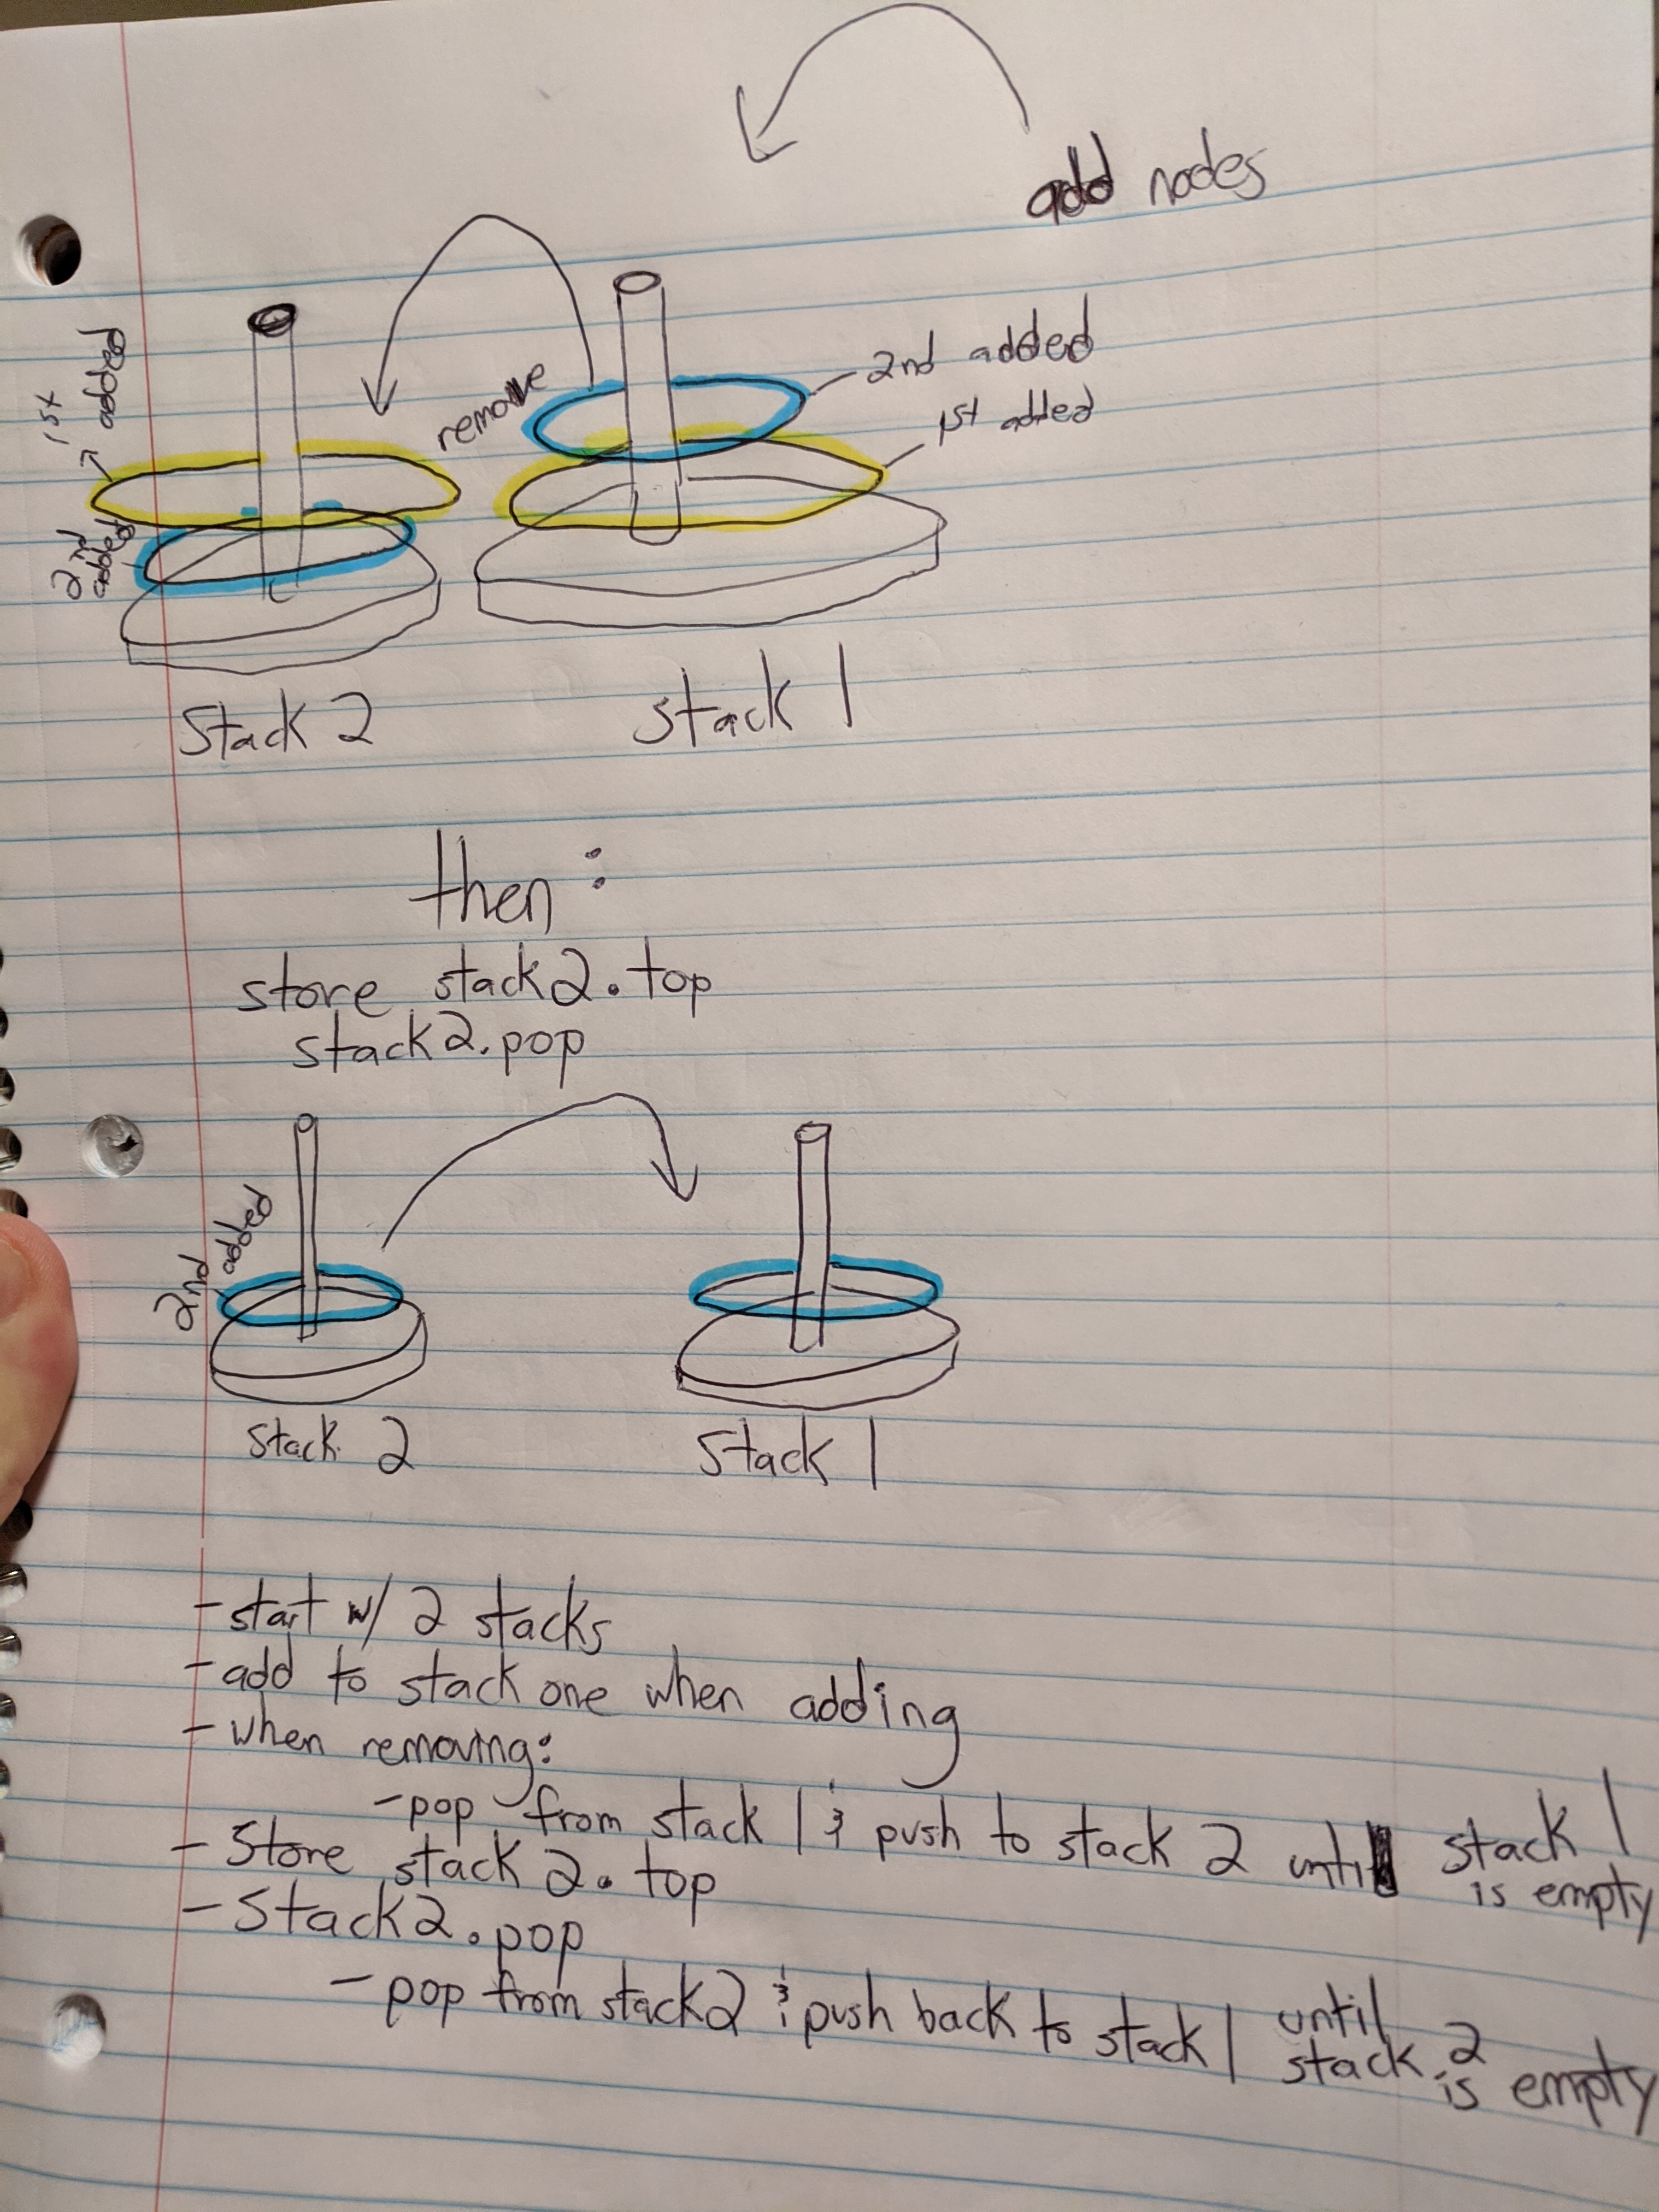 add nodes
1st
added
remove
2nd added
1st added
2nd
added
Stack 2
stack 1
then:
store stack2.top
stack2.pop
2nd
added
Stack 2
Stack 1
- start w/ 2 stacks
- add to stack one when adding
- when removing:
- pop from stack 1 & push to stack 2 until stack 1
is empty
- Store stack 2.top
- Stack2.pop
- pop from stack2 & push back to stack 1 until
stack 2
is empty